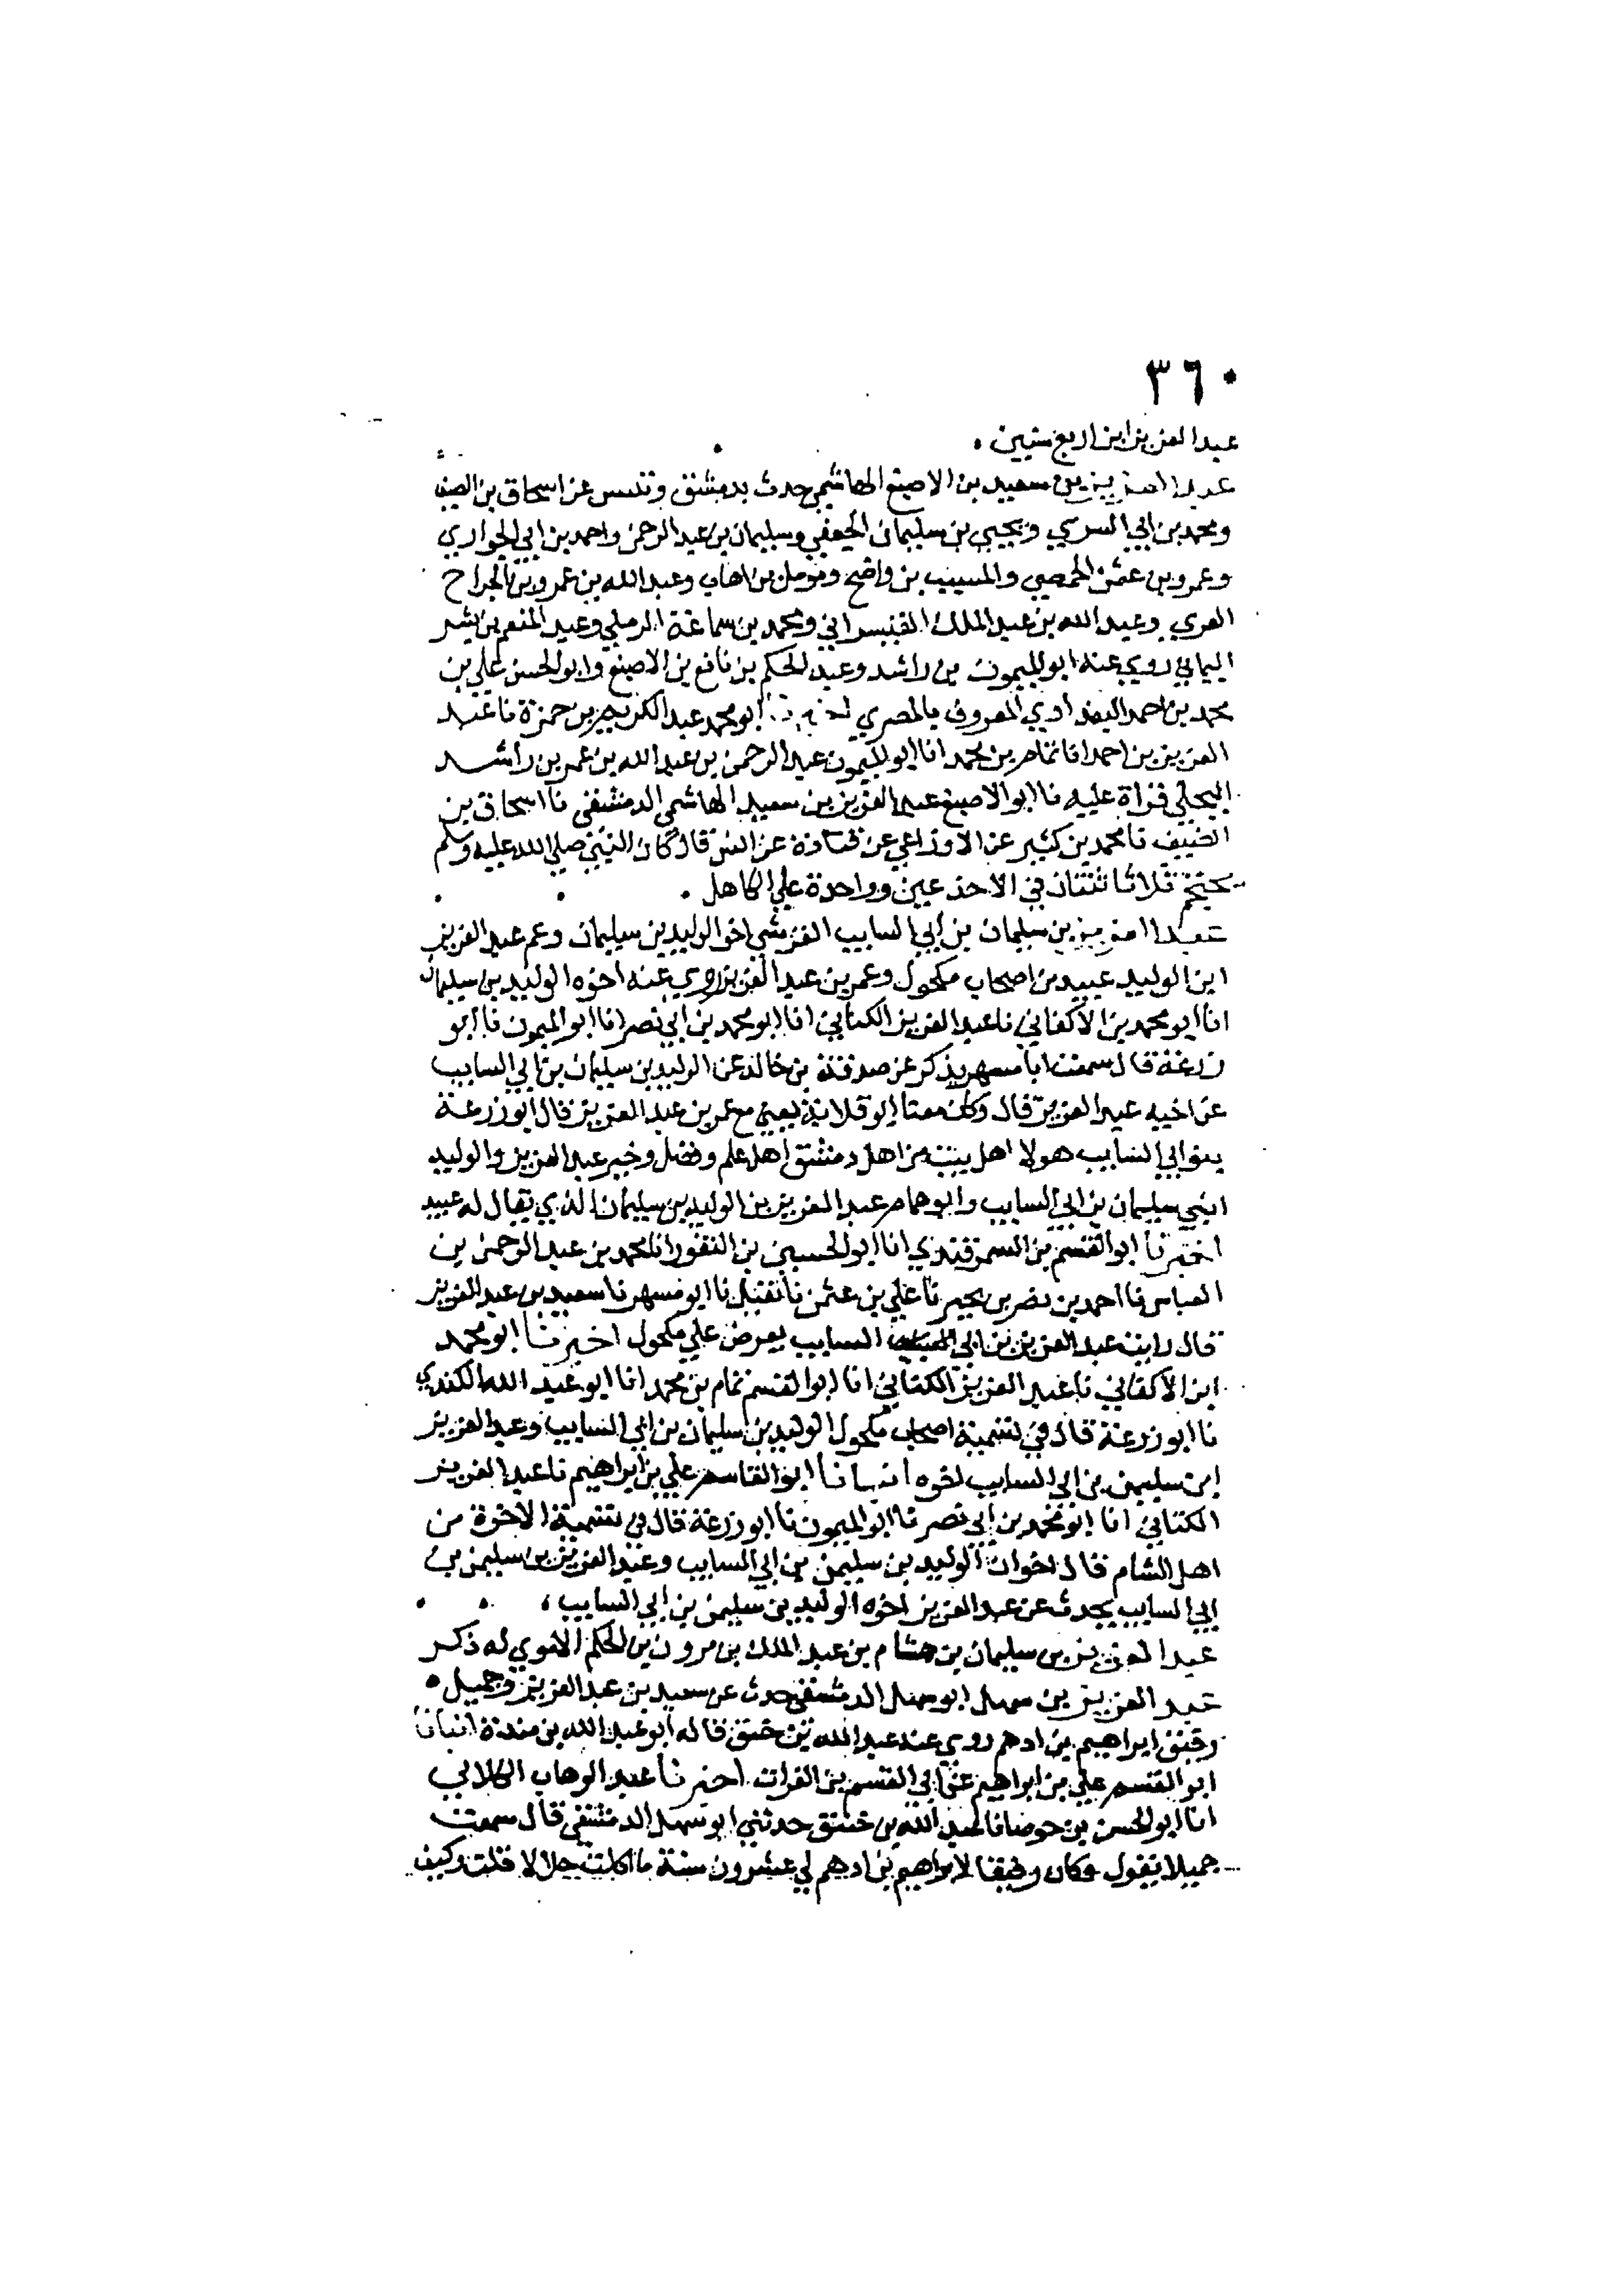 ٣٦٠
عبد العزيز ابن اربع سنين .
عبد العزيز بن سعيد بن الاصبغ الهاشمي حدث بدمشق وتنيس عن اسحاق بن الضيف
ومحمد بن ابي السري ويحيى بن سليمان الجعفي وسليمان بن عبد الرحمن واحمد بن ابي الحواري
وعمرو بن عثمن الحمصي والمسيب بن واضح ومومل بن اهاب وعبد الله بن عمرو بن الجراح
العري وعبد الله بن عبد الملك القيسراني ومحمد بن سماعة الرملي وعبد المنعم بن بشير
اليماني روى عنه ابو الميمون بن راشد وعبد الحكم بن نافع بن الاصبغ وابو الحسن علي بن
محمد بن احمد البغدادي المعروف بالمصري اخبرنا ابو محمد عبد الكريم بن حمزة نا عبد
العزيز بن احمد انا تمام بن محمد انا ابو الميمون عبد الرحمن بن عبد الله بن عمر بن راشد
البجلي قراة عليه نا ابو الاصبغ عبد العزيز بن سعيد الهاشمي الدمشقي نا اسحاق بن
الضيف نا محمد بن كثير عن الاوزاعي عن قتادة عن انس قال كان النبي صلي الله عليه وسلم
يحتجم ثلاثا ثنتان في الاخدعين وواحدة علي الكاهل .
عبد العزيز بن سليمان بن ابي السايب القرشي اخو الوليد بن سليمان وعم عبد العزيز
ابن الوليد عبيد من اصحاب مكحول وعمر بن عبد العزيز روي عنه اخوه الوليد بن سليمان
انا ابو محمد بن الاكفاني نا عبد العزيز الكتاني انا ابو محمد بن ابي نصر انا ابو الميمون نا ابو
زرعة قال سمعت ابا مسهر يذكر عن صدقة بن خالد عن الوليد بن سليمان بن ابي السايب
عن اخيه عبد العزيز قال وكان معنا ابو قلابة يعني مع عمر بن عبد العزيز قال ابو زرعة
بنو ابي السايب هولا اهل بيت من اهل دمشق اهل علم وفضل وخير عبد العزيز والوليد
ابني سليمان بن ابي السايب وابو همام عبد العزيز بن الوليد بن سليمان الذي يقال له عبيد
اخبرنا ابو القسم بن السمرقندي انا ابو الحسين بن النقور انا محمد بن عبد الرحمن بن
العباس نا احمد بن نصر بن بجير نا علي بن عثمن نا نفيل نا ابو مسهر نا سعيد بن عبد العزيز
قال رايت عبد العزيز بن ابي السايب يعرض علي مكحول اخبرنا ابو محمد
ابن الاكفاني نا عبد العزيز الكتاني انا ابو القسم تمام بن محمد انا ابو عبد الله الكندي
نا ابو زرعة قال في تسمية اصحاب مكحول الوليد بن سليمان بن ابي السايب وعبد العزيز
ابن سليمن بن ابي السايب اخوه انبانا ابو القاسم علي بن ابراهيم نا عبد العزيز
الكتاني انا ابو محمد بن ابي نصر نا ابو الميمون نا ابو زرعة قال في تسمية الاخوة من
اهل الشام قال اخوان الوليد بن سليمن بن ابي السايب وعبد العزيز بن سليمن بن
ابي السايب يحدث عن عبد العزيز اخوه الوليد بن سليمن بن ابي السايب ،
عبد العزيز بن سليمان بن هشام بن عبد الملك بن مرون بن الحكم الاموي له ذكر
عبد العزيز بن سهل ابو سهل الدمشقي حدث عن سعيد بن عبد العزيز وجميل
رفيق ابراهيم بن ادهم روي عنه عبد الله بن خبيق قاله ابو عبد الله بن مندة انبانا
ابو القسم علي بن ابراهيم عن ابي القسم بن الفرات اخبرنا عبد الوهاب الكلابي
انا ابو الحسن بن جوصا نا عبد الله بن خبيق حدثني ابو سهل الدمشقي قال سمعت
جميلا يقول وكان رفيقا لابراهيم بن ادهم لي عشرون سنة ما اكلت حلالا قلت وكيف